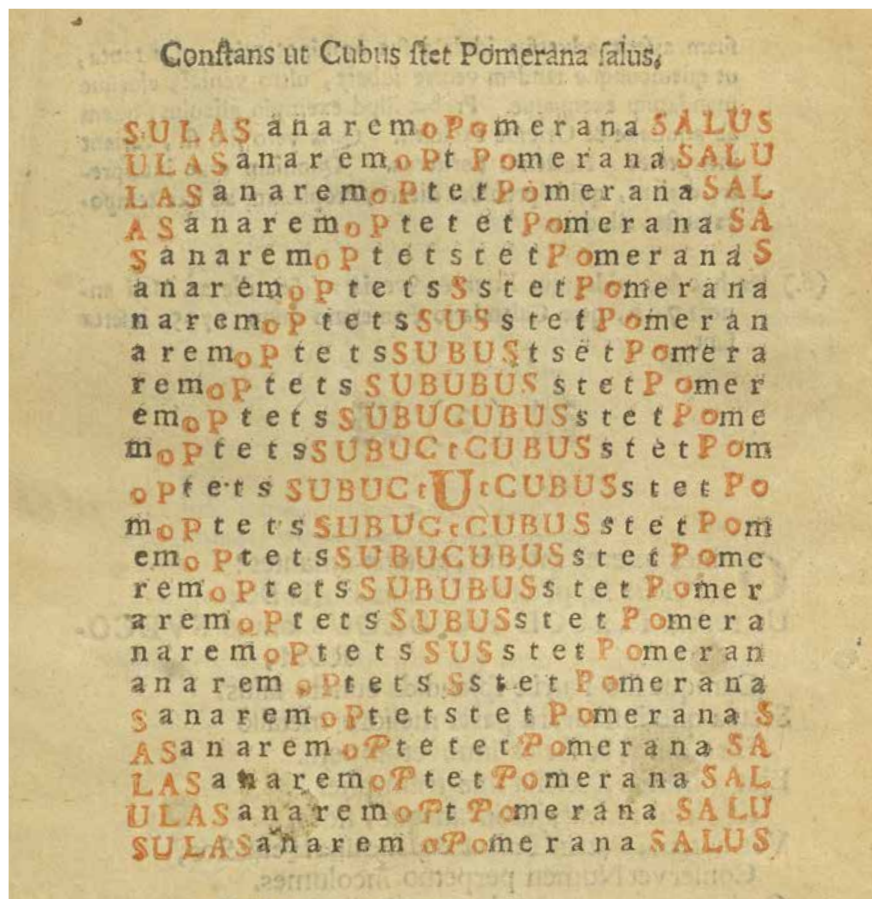 Conſtans ut Cubus ſtet Pomerana ſalus,
SULAS anaremoPomerana SALUS
ULASanaremoPt Pomerana SALU
LASanaremoPtetPomeranaSAL
ASanaremoPtetetPomerana SA
SanaremoPtetstetPomerana S
anaremoPtetsSstetPomerana
naremoPtetsSUSstetPomeran
aremoPtetsSUBUStsetPomera
remoPtetsSUBUBUS stetPomer
emoPtetsSUBUCUBUSstetPome
moPtetsSUBUCtCUBUSstetPom
oPtets SUBUCtUtCUBUSstetPo
moPtetsSUBUCtCUBUSstetPom
emoPtetsSUBUCUBUSstetPome
remoPtetsSUBUBUSstetPomer
aremoPtetsSUBUSstetPomera
naremoPtetsSUSstetPomeran
anaremoPtetsSstetPomerana
SanaremoPtetstetPomerana S
ASanaremoPtetetPomerana SA
LASanaremoPtetPomerana SAL
ULASanaremoPt Pomerana SALU
SULASanaremoPomerana SALUS